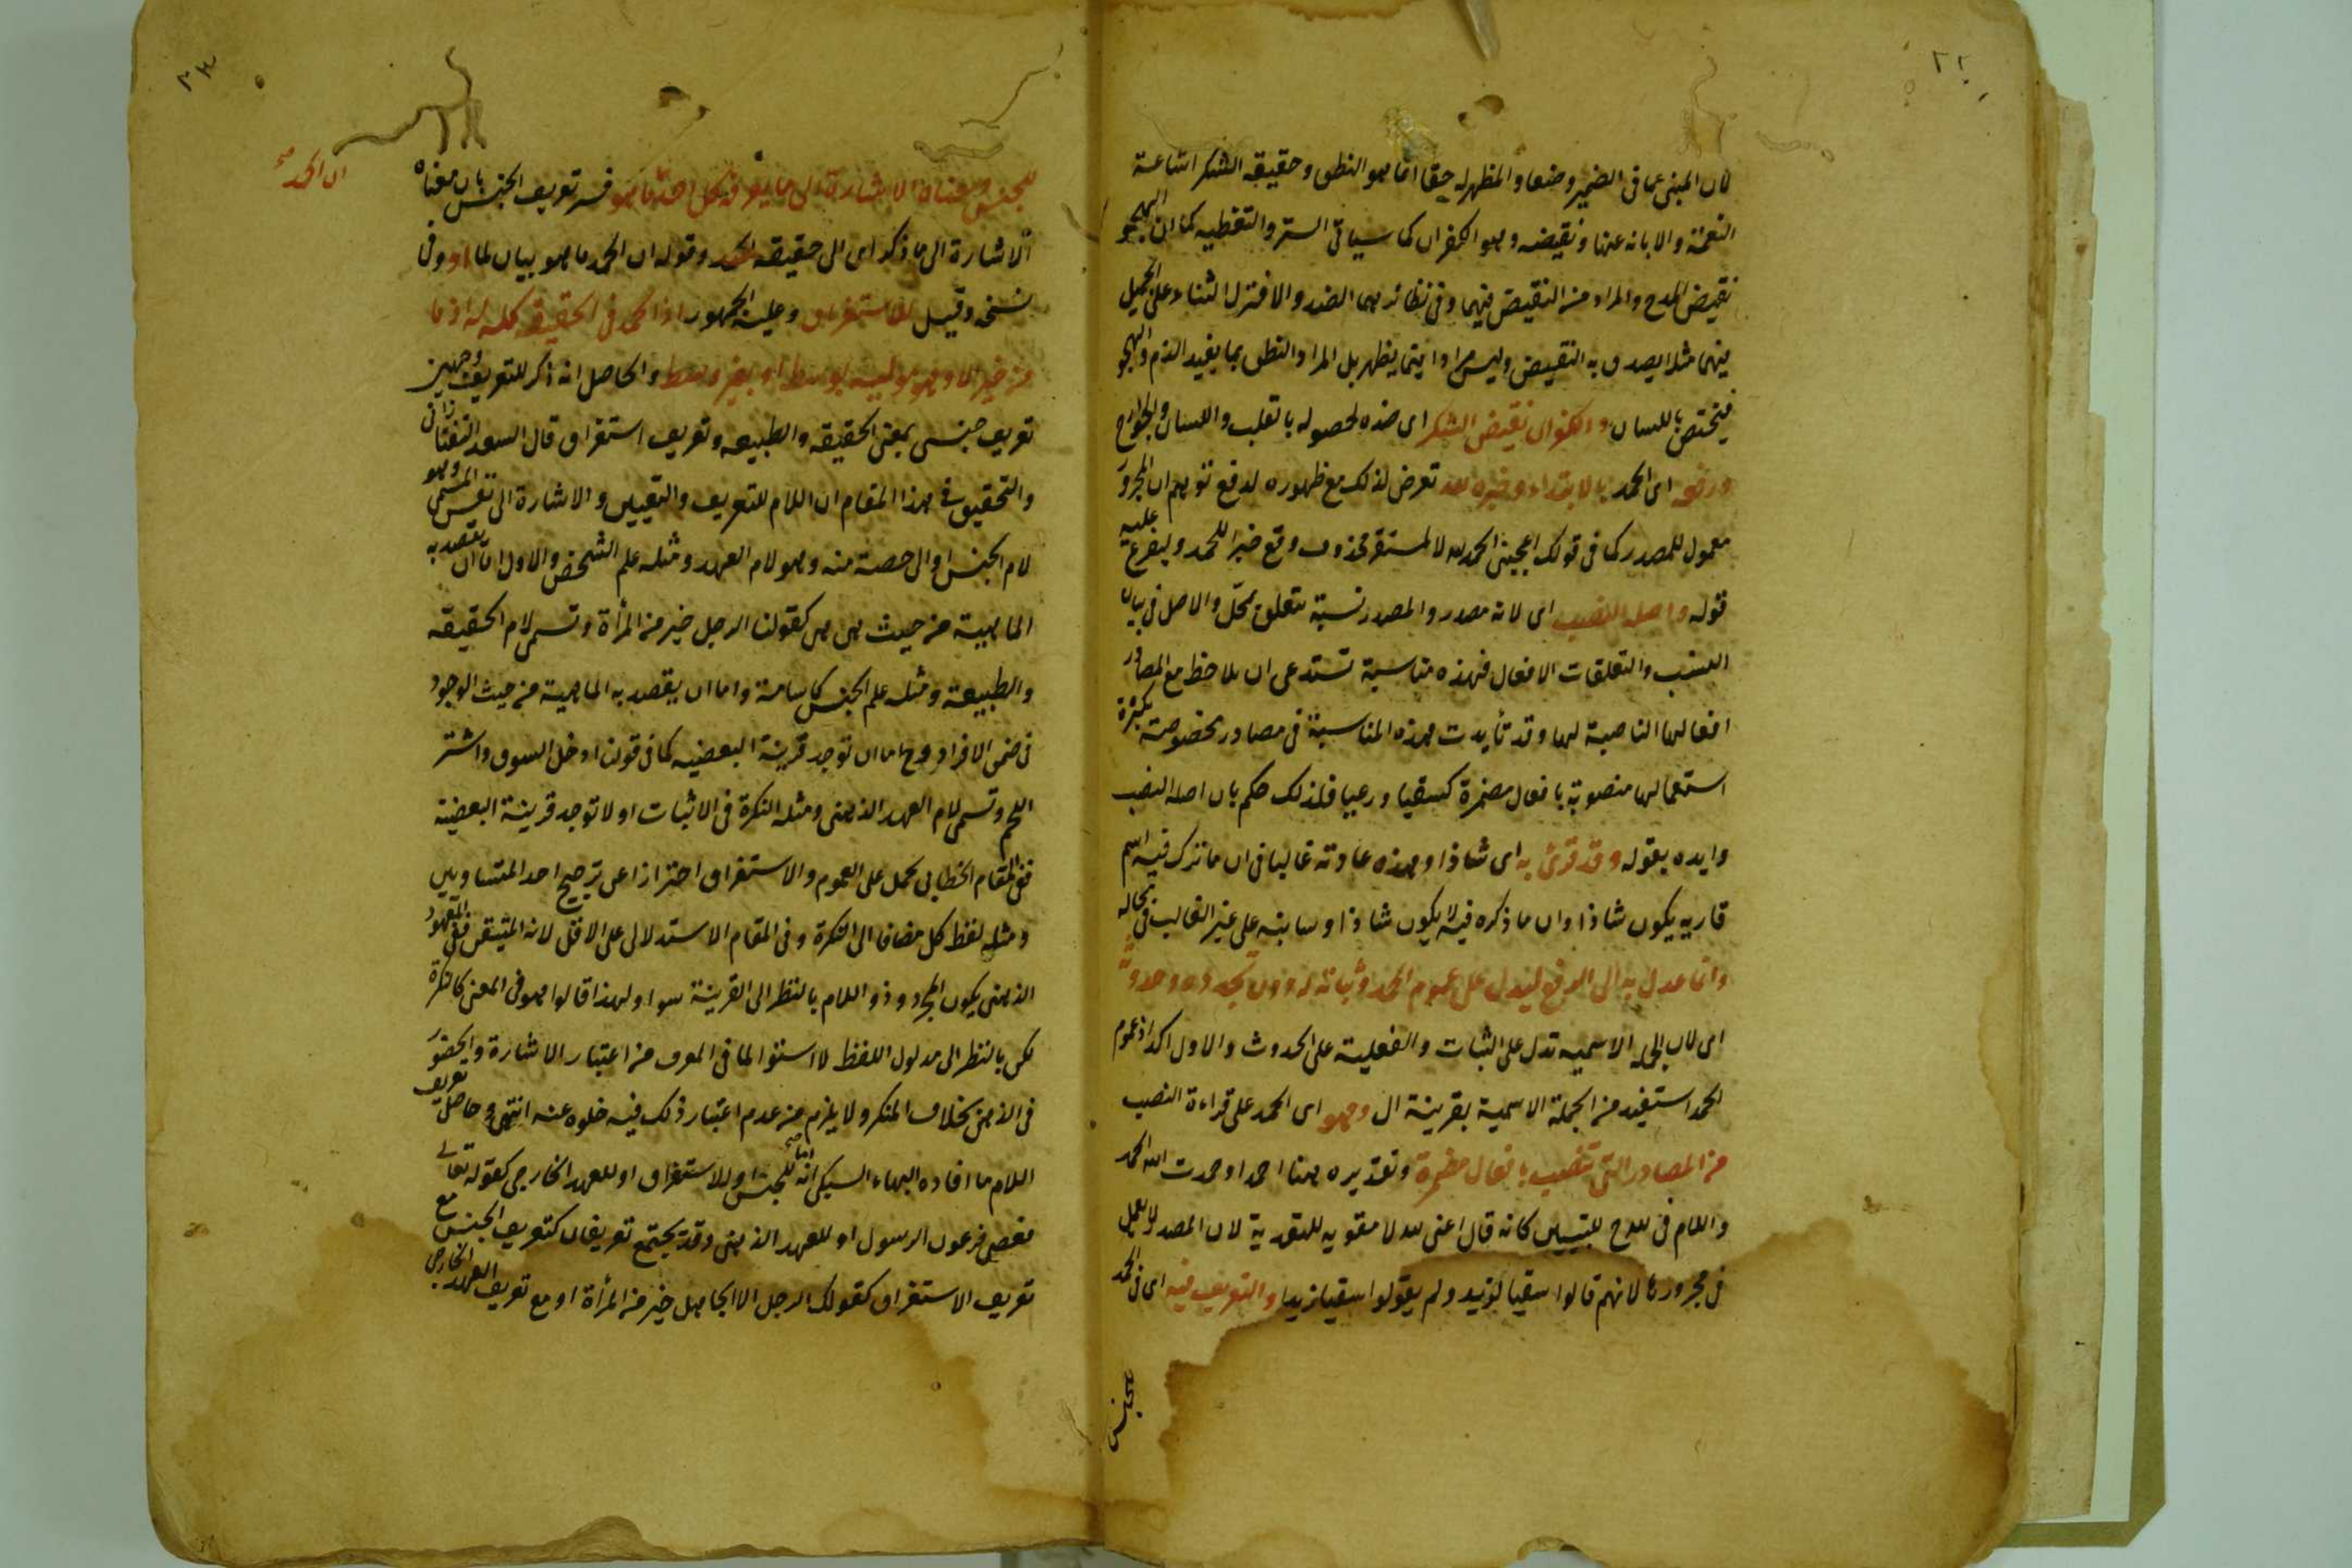 لان المبنى عما فى الضمير وضعا والمظهر له حقا انما هو النطق وحقيقة الشكر اشاعة
النعمة والابانة عنها ونقيضه وهو الكفران كما سياتى الستر والتغطيه كما ان الهجو
نقيض المدح والمراد من النقيض فيهما وفى نظائرهما الضد والا فترك الثناء على الجميل
منهما مثلا يصدق به النقيض وليس مرادا فيما يظهر بل المراد النطق بما يفيد الذم والهجو
فيختص باللسان والكفران نقيض الشكر اى ضده لحصوله بالقلب واللسان والجوارح
ورفعه اى الحمد بالابتداء وخبره لله تعرض لذلك مع ظهوره لدفع توهم ان المجرور
معمول للمصدر كما فى قولك اعجبنى الحمد لله لا لمستقر محذوف وقع خبرا للحمد وليفرع عليه
قوله واصله النصب اى لانه مصدر والمصدر نسبة تتعلق بمحل والاصل فى بيان
النسب والتعلقات الافعال فهذه مناسبة تستدعى ان يلاحظ مع المصادر
افعالها الناصبة لها وقد تأيدت هذه المناسبة فى مصادر مخصوصة بكثرة
استعمالها منصوبة بافعال مضمرة كسقيا ورعيا فلذلك حكم بان اصله النصب
وايده بقوله وقد قرئ به اى شاذا وهذه عادته غالبا فى ان ما ترك فيه اسم
قاريه يكون شاذا وان ما ذكره فيه لا يكون شاذا وسانبه على غير الغالب فى محاله
وانما عدل به الى الرفع ليدل على عموم الحمد وثباته له دون تجدده وحدوثه
اى لان الجملة الاسميه تدل على الثبات والفعلية على الحدوث والاول اكد اذ عموم
الحمد استفيد من الجملة الاسمية بقرينة ال وهو اى الحمد على قراءة النصب
من المصادر التى تنصب بافعال مضمرة وتقديره هنا احمد او حمدت الله الحمد
واللام فى لله ح للتبيين كانه قال اعنى لله لا مقويه للتعدية لان المصدر لا يعمل
فى مجرورها لانهم قالوا سقيا لزيد ولم يقولوا سقيا زيدا والتعريف فيه اى فى الحمد
للجنس
للجنس ومعناه الاشارة الى ما يعرفه كل احد ما هو فسر تعريف الجنس بان معناه
ان الحمد صح
الاشارة الى ما ذكر اى الى حقيقة الحمد وقوله ان الحمد ما هو بيان لما وفى
نسخه وقيل للاستغراق وعليه الجمهور اذ الحمد فى الحقيقة كله له اذ ما
من خير الا وهو موليه بوسط او بغير وسط والحاصل انه ذكر للتعريف وجهين
تعريف جنس بمعنى الحقيقه والطبيعه وتعريف استغراق قال السعد التفتازانى
والتحقيق فى هذا المقام ان اللام للتعريف والتعيين والاشارة الى نفس المسمى وهو
لام الجنس او الى حصة منه وهو لام العهد ومثله علم الشخص والاول اما ان يقصد به
الماهية من حيث هى هى كقولنا الرجل خير من المرأة وتسمى لام الحقيقه
والطبيعة ومثله علم الجنس كاسامة واما ان يقصد به الماهية من حيث الوجود
فى ضمن الافراد وح اما ان توجد قرينة البعضيه كما فى قولنا ادخل السوق واشتر
اللحم وتسمى لام العهد الذهنى ومثله النكرة فى الاثبات اولا توجد قرينة البعضية
ففى المقام الخطابى يحمل على العموم والاستغراق احترازا عن ترجيح احد المتساويين
ومثله لفظ كل مضافا الى النكرة وفى المقام الاستدلالى على الاقل لانه المتيقن ففى المعهود
الذهنى يكون المجرد وذو اللام بالنظر الى القرينة سواء ولهذا قالوا هو فى المعنى كالنكرة
لكن بالنظر الى مدلول اللفظ لا استوا لما فى المعرف من اعتبار الاشارة والحضور
فى الذهن بخلاف المنكر ولا يلزم من عدم اعتبار ذلك فيه خلوه عنه انتهى وحاصل تعريف
اللام ما افاده البهاء السبكى انه اما للجنس او للاستغراق او للعهد الخارجى كقوله تعالى
فعصى فرعون الرسول او للعهد الذهنى وقد يجتمع تعريفان كتعريف الجنس مع
تعريف الاستغراق كقولك الرجل الا الجاهل خير من المرأة او مع تعريف العهد الخارجى